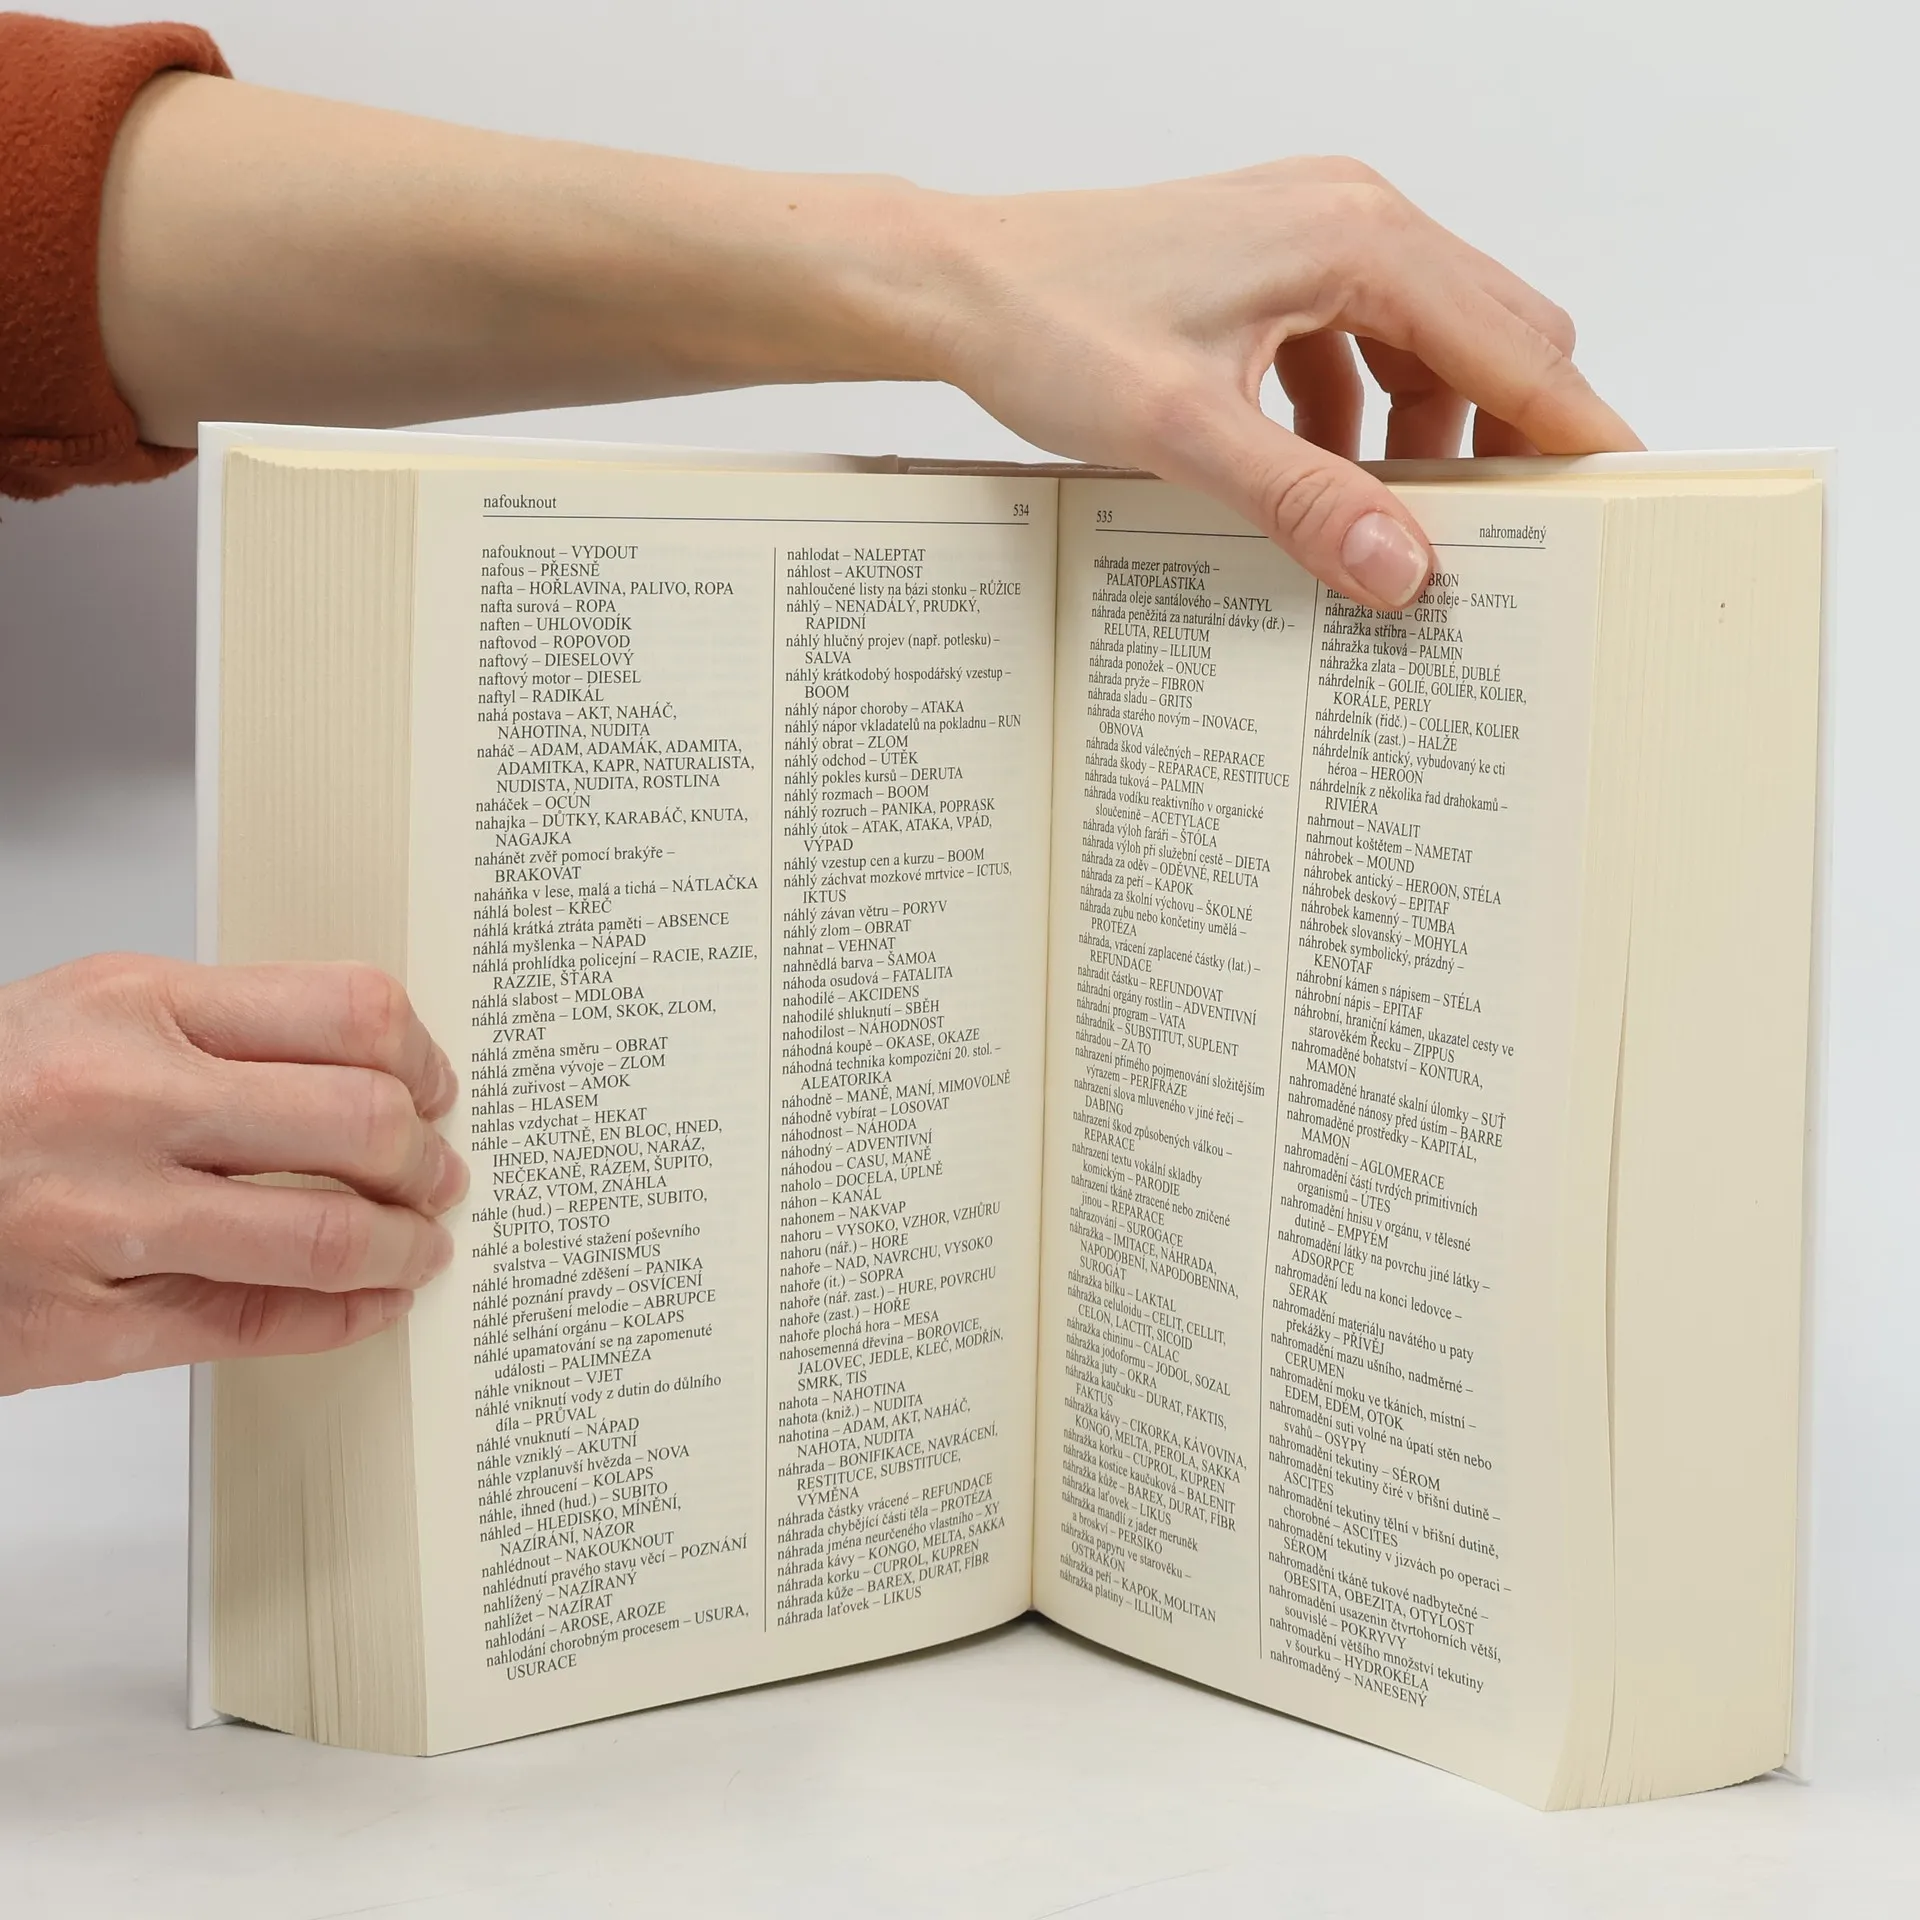 nafouknout
534
nafouknout – VYDOUT
nafous – PŘESNĚ
nafta – HOŘLAVINA, PALIVO, ROPA
nafta surová – ROPA
naften – UHLOVODÍK
naftovod – ROPOVOD
naftový – DIESELOVÝ
naftový motor – DIESEL
naftyl – RADIKÁL
nahá postava – AKT, NAHÁČ,
NAHOTINA, NUDITA
naháč – ADAM, ADAMÁK, ADAMITA,
ADAMITKA, KAPR, NATURALISTA,
NUDISTA, NUDITA, ROSTLINA
naháček – OCÚN
nahajka – DŮTKY, KARABÁČ, KNUTA,
NAGAJKA
nahánět zvěř pomocí brakýře –
BRAKOVAT
naháňka v lese, malá a tichá – NÁTLAČKA
náhlá bolest – KŘEČ
náhlá krátká ztráta paměti – ABSENCE
náhlá myšlenka – NÁPAD
náhlá prohlídka policejní – RACIE, RAZIE,
RAZZIE, ŠŤÁRA
náhlá slabost – MDLOBA
náhlá změna – LOM, SKOK, ZLOM,
ZVRAT
náhlá změna směru – OBRAT
náhlá změna vývoje – ZLOM
náhlá zuřivost – AMOK
nahlas – HLASEM
nahlas vzdychat – HEKAT
náhle – AKUTNĚ, EN BLOC, HNED,
IHNED, NAJEDNOU, NARÁZ,
NEČEKANĚ, RÁZEM, ŠUPITO,
VRÁZ, VTOM, ZNÁHLA
náhle (hud.) – REPENTE, SUBITO,
ŠUPITO, TOSTO
náhlé a bolestivé stažení poševního
svalstva – VAGINISMUS
náhlé hromadné zděšení – PANIKA
náhlé poznání pravdy – OSVÍCENÍ
náhlé přerušení melodie – ABRUPCE
náhlé selhání orgánu – KOLAPS
náhlé upamatování se na zapomenuté
události – PALIMNÉZA
náhle vniknout – VJET
náhlé vniknutí vody z dutin do důlního
díla – PRŮVAL
náhlé vnuknutí – NÁPAD
náhle vzniklý – AKUTNÍ
náhle vzplanuvší hvězda – NOVA
náhlé zhroucení – KOLAPS
náhle, ihned (hud.) – SUBITO
náhled – HLEDISKO, MÍNĚNÍ,
NAZÍRÁNÍ, NÁZOR
nahlédnout – NAKOUKNOUT
nahlédnutí pravého stavu věcí – POZNÁNÍ
nahlížený – NAZÍRANÝ
nahlížet – NAZÍRAT
nahlodání – AROSE, AROZE
nahlodání chorobným procesem – USURA,
USURACE
nahlodat – NALEPTAT
náhlost – AKUTNOST
nahloučené listy na bázi stonku – RŮŽICE
náhlý – NENADÁLÝ, PRUDKÝ,
RAPIDNÍ
náhlý hlučný projev (např. potlesku) –
SALVA
náhlý krátkodobý hospodářský vzestup –
BOOM
náhlý nápor choroby – ATAKA
náhlý nápor vkladatelů na pokladnu – RUN
náhlý obrat – ZLOM
náhlý odchod – ÚTĚK
náhlý pokles kursů – DERUTA
náhlý rozmach – BOOM
náhlý rozruch – PANIKA, POPRASK
náhlý útok – ATAK, ATAKA, VPÁD,
VÝPAD
náhlý vzestup cen a kurzu – BOOM
náhlý záchvat mozkové mrtvice – ICTUS,
IKTUS
náhlý závan větru – PORYV
náhlý zlom – OBRAT
nahnat – VEHNAT
nahnědlá barva – ŠAMOA
náhoda osudová – FATALITA
nahodilé – AKCIDENS
nahodilé shluknutí – SBĚH
nahodilost – NÁHODNOST
náhodná koupě – OKASE, OKAZE
náhodná technika kompoziční 20. stol. –
ALEATORIKA
náhodně – MANĚ, MANÍ, MIMOVOLNĚ
náhodně vybírat – LOSOVAT
náhodnost – NÁHODA
náhodný – ADVENTIVNÍ
náhodou – CASU, MANĚ
naholo – DOCELA, ÚPLNĚ
náhon – KANÁL
nahonem – NAKVAP
nahoru – VYSOKO, VZHOR, VZHŮRU
nahoru (nář.) – HORE
nahoře – NAD, NAVRCHU, VYSOKO
nahoře (it.) – SOPRA
nahoře (nář. zast.) – HURE, POVRCHU
nahoře (zast.) – HOŘE
nahoře plochá hora – MESA
nahosemenná dřevina – BOROVICE,
JALOVEC, JEDLE, KLEČ, MODŘÍN,
SMRK, TIS
nahota – NAHOTINA
nahota (kniž.) – NUDITA
nahotina – ADAM, AKT, NAHÁČ,
NAHOTA, NUDITA
náhrada – BONIFIKACE, NAVRÁCENÍ,
RESTITUCE, SUBSTITUCE,
VÝMĚNA
náhrada částky vrácené – REFUNDACE
náhrada chybějící části těla – PROTÉZA
náhrada jména neurčeného vlastního – XY
náhrada kávy – KONGO, MELTA, SAKKA
náhrada korku – CUPROL, KUPREN
náhrada kůže – BAREX, DURAT, FÍBR
náhrada laťovek – LIKUS
535
nahromaděný
náhrada mezer patrových –
PALATOPLASTIKA
náhrada oleje santálového – SANTYL
náhrada peněžitá za naturální dávky (dř.) –
RELUTA, RELUTUM
náhrada platiny – ILLIUM
náhrada ponožek – ONUCE
náhrada pryže – FIBRON
náhrada sladu – GRITS
náhrada starého novým – INOVACE,
OBNOVA
náhrada škod válečných – REPARACE
náhrada škody – REPARACE, RESTITUCE
náhrada tuková – PALMIN
náhrada vodíku reaktivního v organické
sloučenině – ACETYLACE
náhrada výloh faráři – ŠTÓLA
náhrada výloh při služební cestě – DIETA
náhrada za oděv – ODĚVNÉ, RELUTA
náhrada za peří – KAPOK
náhrada za školní výchovu – ŠKOLNÉ
náhrada zubu nebo končetiny umělá –
PROTÉZA
náhrada, vrácení zaplacené částky (lat.) –
REFUNDACE
nahradit částku – REFUNDOVAT
náhradní orgány rostlin – ADVENTIVNÍ
náhradní program – VATA
náhradník – SUBSTITUT, SUPLENT
náhradou – ZA TO
nahrazení přímého pojmenování složitějším
výrazem – PERIFRÁZE
nahrazení slova mluveného v jiné řeči –
DABING
nahrazení škod způsobených válkou –
REPARACE
nahrazení textu vokální skladby
komickým – PARODIE
nahrazení tkáně ztracené nebo zničené
jinou – REPARACE
nahrazování – SUROGACE
náhražka – IMITACE, NÁHRADA,
NAPODOBENÍ, NAPODOBENINA,
SUROGÁT
náhražka bílku – LAKTAL
náhražka celuloidu – CELIT, CELLIT,
CELON, LACTIT, SICOID
náhražka chininu – CALAC
náhražka jodoformu – JODOL, SOZAL
náhražka juty – OKRA
náhražka kaučuku – DURAT, FAKTIS,
FAKTUS
náhražka kávy – CIKORKA, KÁVOVINA,
KONGO, MELTA, PEROLA, SAKKA
náhražka korku – CUPROL, KUPREN
náhražka kostice kaučuková – BALENIT
náhražka kůže – BAREX, DURAT, FÍBR
náhražka laťovek – LIKUS
náhražka mandlí z jader meruněk
a broskví – PERSIKO
náhražka papyru ve starověku –
OSTRAKON
náhražka peří – KAPOK, MOLITAN
náhražka platiny – ILLIUM
BRON
oleje – SANTYL
náhražka sladu – GRITS
náhražka stříbra – ALPAKA
náhražka tuková – PALMIN
náhražka zlata – DOUBLÉ, DUBLÉ
náhrdelník – GOLIÉ, GOLIÉR, KOLIER,
KORÁLE, PERLY
náhrdelník (řidč.) – COLLIER, KOLIER
náhrdelník (zast.) – HALŽE
náhrdelník antický, vybudovaný ke cti
héroa – HEROON
náhrdelník z několika řad drahokamů –
RIVIÉRA
nahrnout – NAVALIT
nahrnout koštětem – NAMETAT
náhrobek – MOUND
náhrobek antický – HEROON, STÉLA
náhrobek deskový – EPITAF
náhrobek kamenný – TUMBA
náhrobek slovanský – MOHYLA
náhrobek symbolický, prázdný –
KENOTAF
náhrobní kámen s nápisem – STÉLA
náhrobní nápis – EPITAF
náhrobní, hraniční kámen, ukazatel cesty ve
starověkém Řecku – ZIPPUS
nahromaděné bohatství – KONTURA,
MAMON
nahromaděné hranaté skalní úlomky – SUŤ
nahromaděné nánosy před ústím – BARRE
nahromaděné prostředky – KAPITÁL,
MAMON
nahromadění – AGLOMERACE
nahromadění částí tvrdých primitivních
organismů – ÚTES
nahromadění hnisu v orgánu, v tělesné
dutině – EMPYÉM
nahromadění látky na povrchu jiné látky –
ADSORPCE
nahromadění ledu na konci ledovce –
SERAK
nahromadění materiálu navátého u paty
překážky – PŘÍVĚJ
nahromadění mazu ušního, nadměrné –
CERUMEN
nahromadění moku ve tkáních, místní –
EDEM, EDÉM, OTOK
nahromadění suti volné na úpatí stěn nebo
svahů – OSYPY
nahromadění tekutiny – SÉROM
nahromadění tekutiny čiré v břišní dutině –
ASCITES
nahromadění tekutiny tělní v břišní dutině,
chorobné – ASCITES
nahromadění tekutiny v jizvách po operaci –
SÉROM
nahromadění tkáně tukové nadbytečné –
OBESITA, OBEZITA, OTYLOST
nahromadění usazenin čtvrtohorních větší,
souvislé – POKRYVY
nahromadění většího množství tekutiny
v šourku – HYDROKÉLA
nahromaděný – NANESENÝ